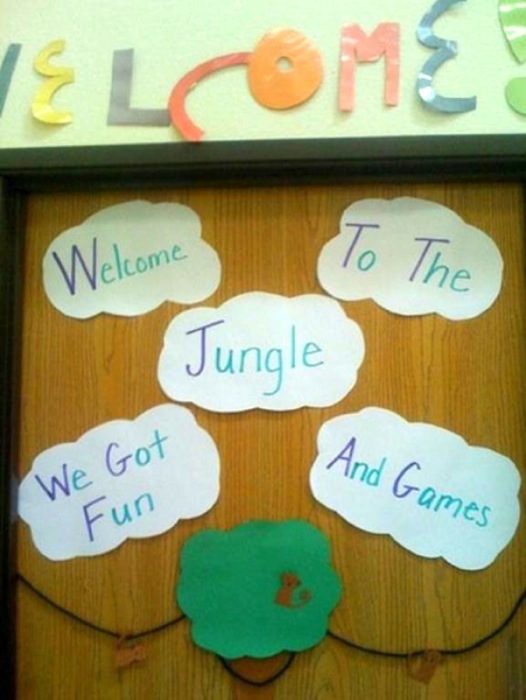 WELCOME!
Welcome
To The
Jungle
We Got
Fun
And Games